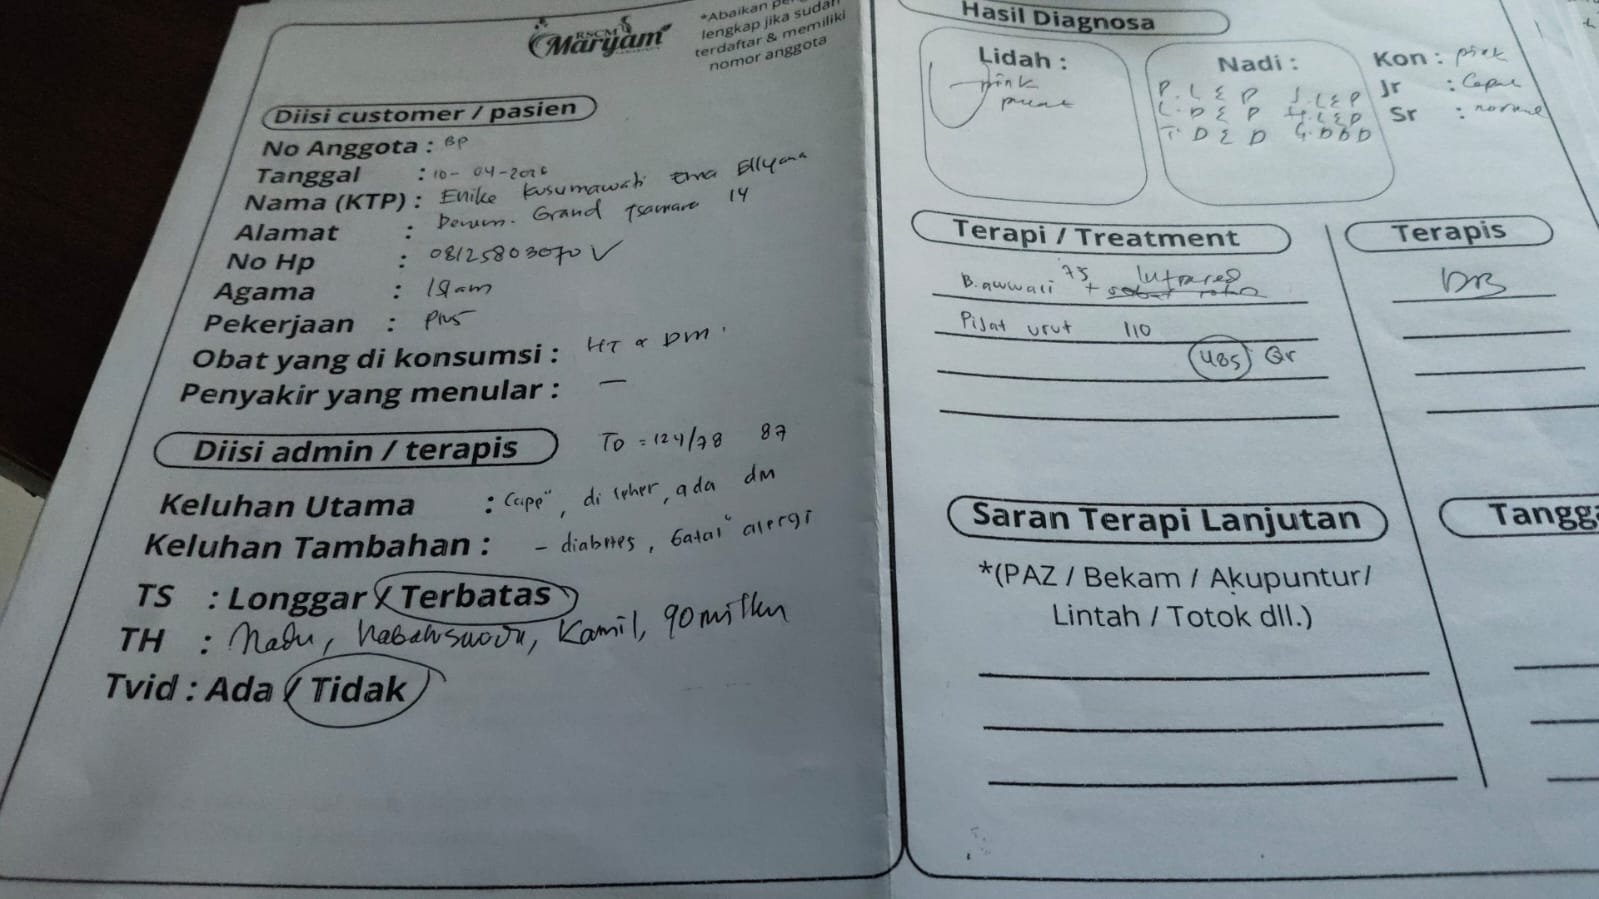 RSCM
Maryam
*Abaikan
lengkap jika sudah
terdaftar & memiliki
nomor anggota
Diisi customer / pasien
No Anggota : BP
Tanggal : 10-04-2026
Nama (KTP) : Enike Kusumawati Erna Ellyana
Alamat : Perum. Grand Tsamara 14
No Hp : 08125803070 V
Agama : Islam
Pekerjaan : PNS
Obat yang di konsumsi : HT & DM
Penyakir yang menular : —
Diisi admin / terapis TD = 124/78 87
Keluhan Utama : Cape", di leher, ada dm
Keluhan Tambahan : - diabetes, Gatal" alergi
TS : Longgar / Terbatas
TH : Madu, habbatussauda, Kamil,
Tvid : Ada / Tidak
Hasil Diagnosa
Lidah :
pink
pucat
Nadi :
P. L E P J. L E P
L. D E P H. L E D
T. D E D G. D D D
Kon :
Jr :
Sr : normal
Terapi / Treatment
B. awwali 75 + Infrared
Pijat urut 110
485 Qr
Terapis
Saran Terapi Lanjutan
*(PAZ / Bekam / Akupuntur/
Lintah / Totok dll.)
Tangga